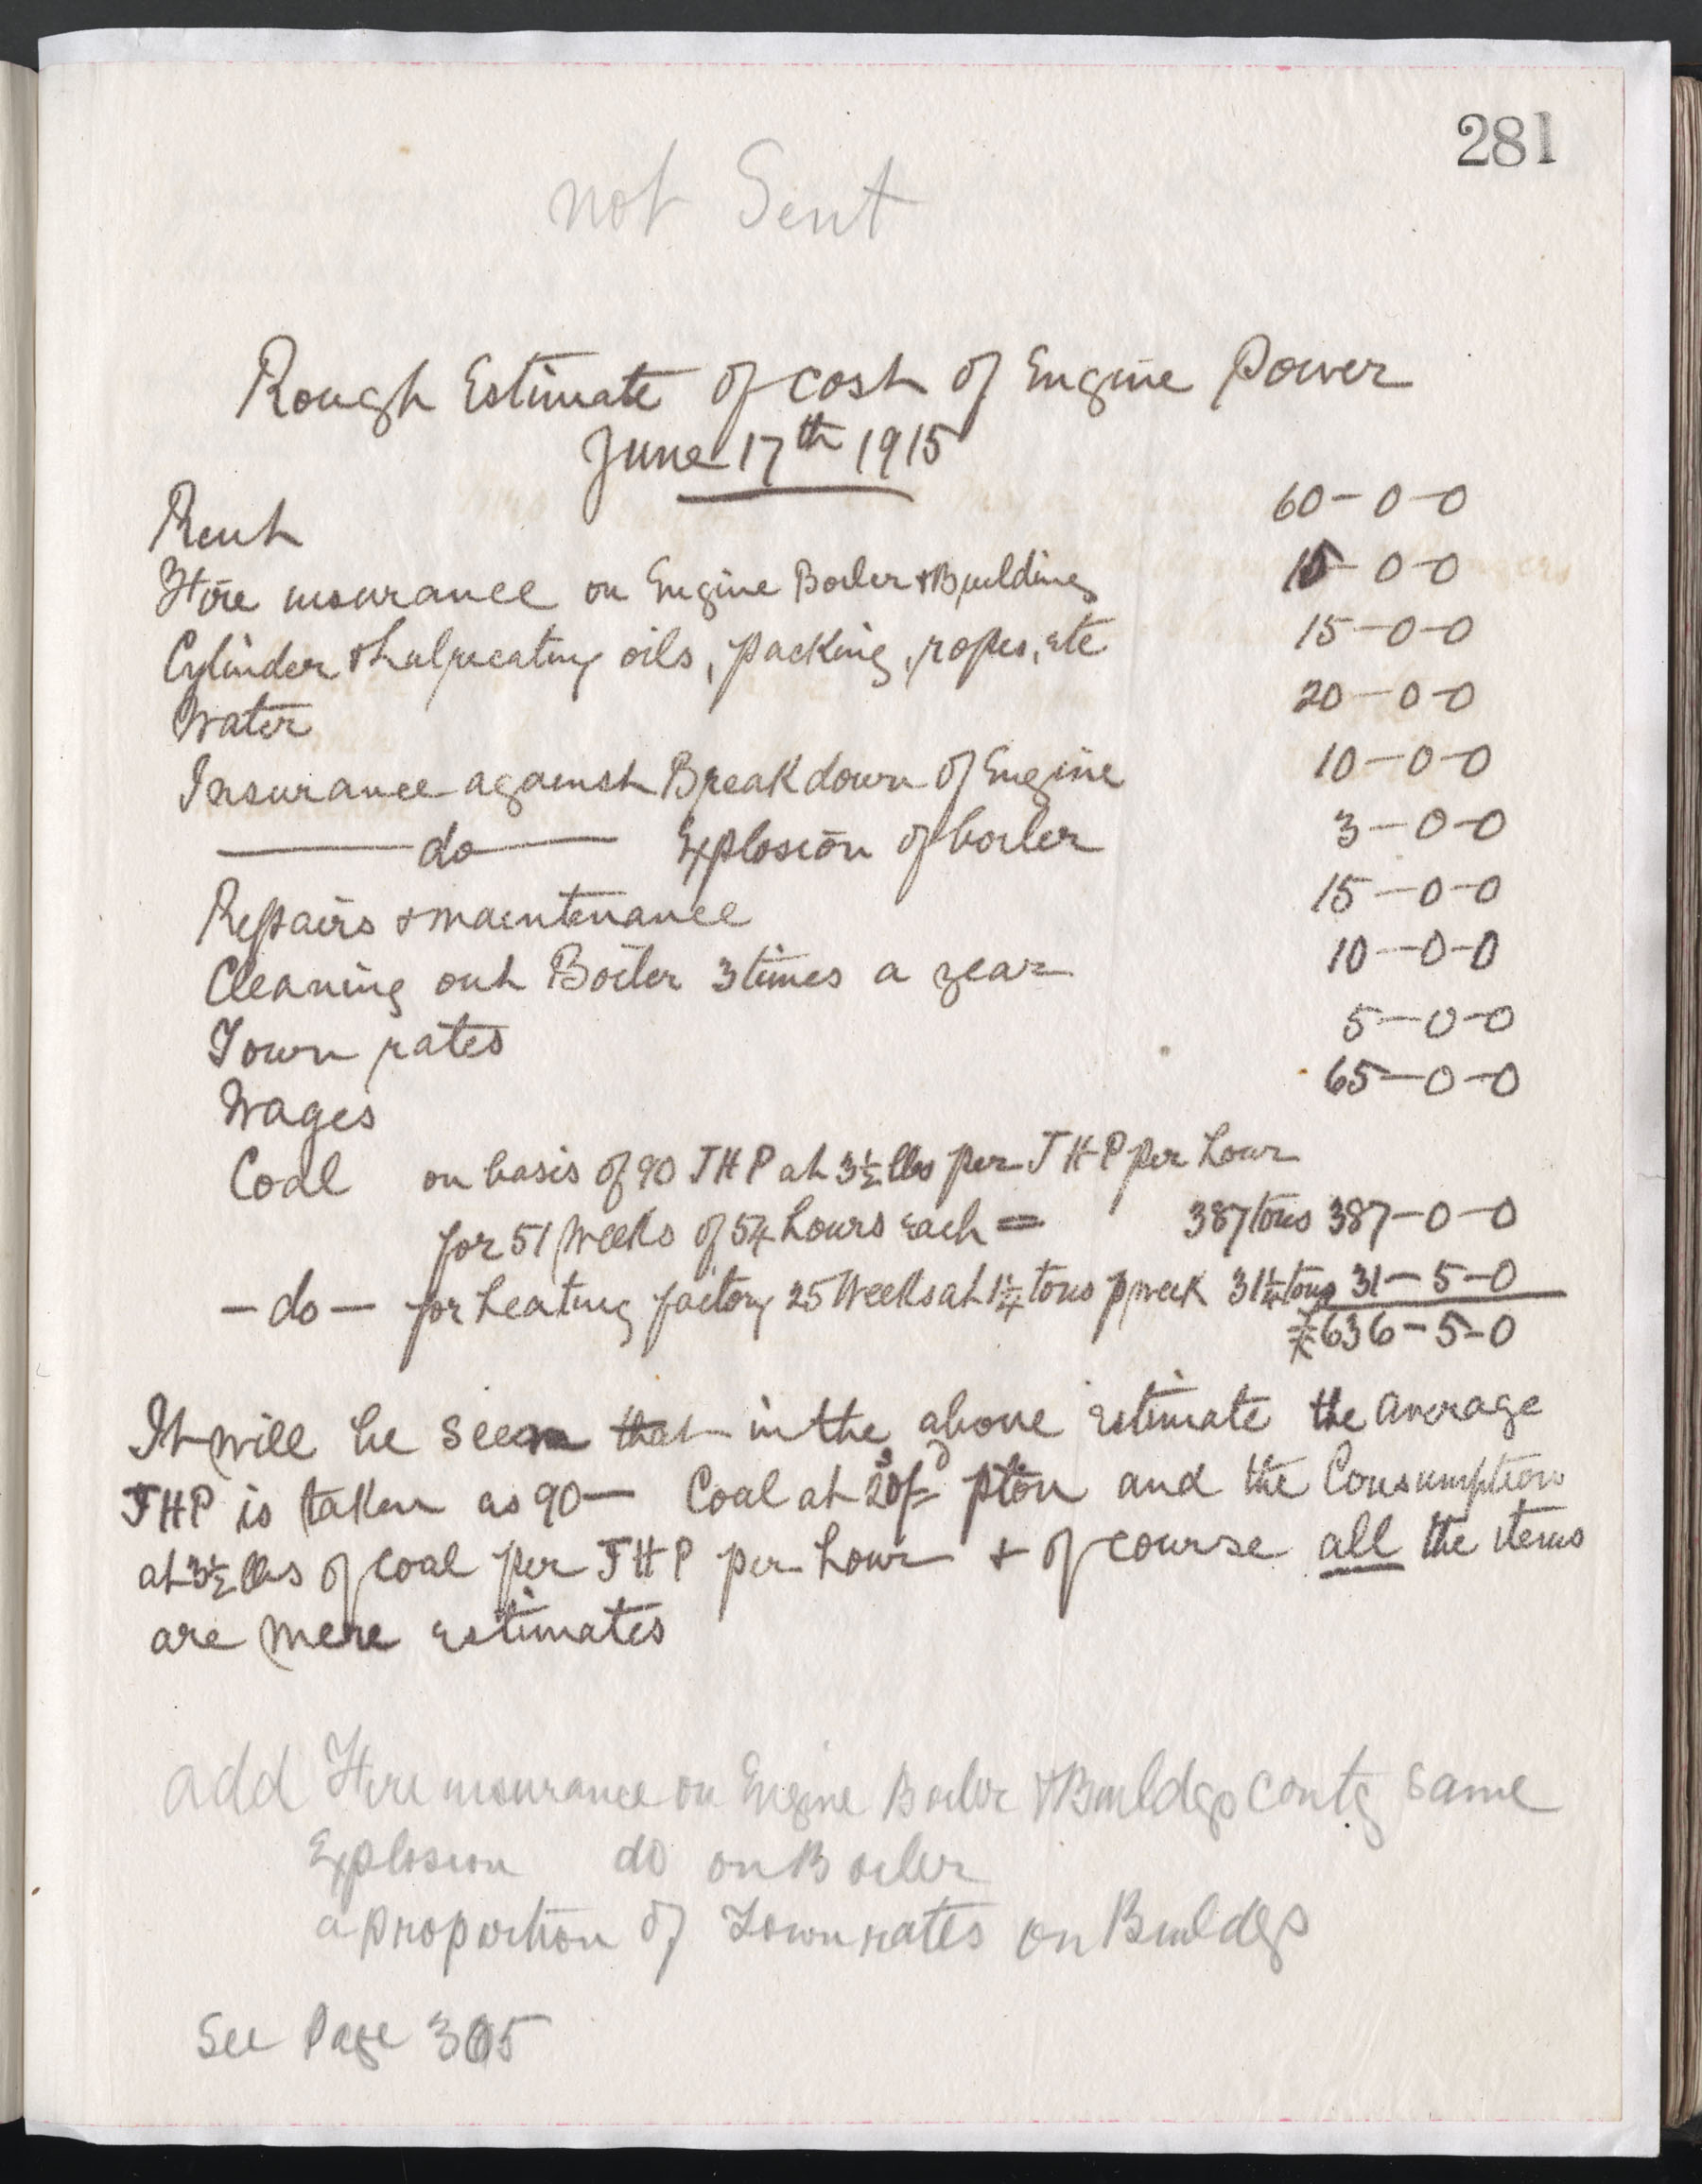 281
not Sent
Rough Estimate of cost of Engine Power
June 17th 1915
Rent 60-0-0
Fire insurance on Engine Boiler & Building 15-0-0
Cylinder & Lubricating oils, packing, ropes, etc 15-0-0
Water 20-0-0
Insurance against Breakdown of Engine 10-0-0
— do — Explosion of boiler 3-0-0
Repairs & maintenance 15-0-0
Cleaning out Boiler 3 times a year 10-0-0
Town rates 5-0-0
Wages 65-0-0
Coal on basis of 90 IHP at 3½ lbs per IHP per hour
for 51 weeks of 54 hours each = 387 tons 387-0-0
- do - for heating factory 25 Weeks at 1¼ tons p week 31¼ tons 31-5-0
£636-5-0
It will be seen that in the above estimate the average
IHP is taken as 90 - Coal at 20s/-d p ton and the Consumption
at 3½ lbs of coal per IHP per hour & of course all the items
are mere estimates
add Fire insurance on Engine Boiler & Buildgs contg same
Explosion do on Boiler
a proportion of Town rates on Buildgs
See Page 305